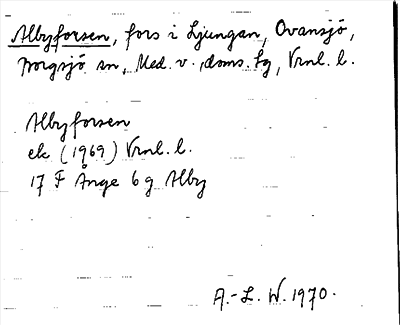 Albyforsen, fors i Ljungan, Ovansjö,
Borgsjö sn, Med. v. doms. tg, Vrnl. l.
Albyforsen
ek (1969) Vrnl. l.
17 F Ånge 6 g Alby
A.-L. W. 1970.